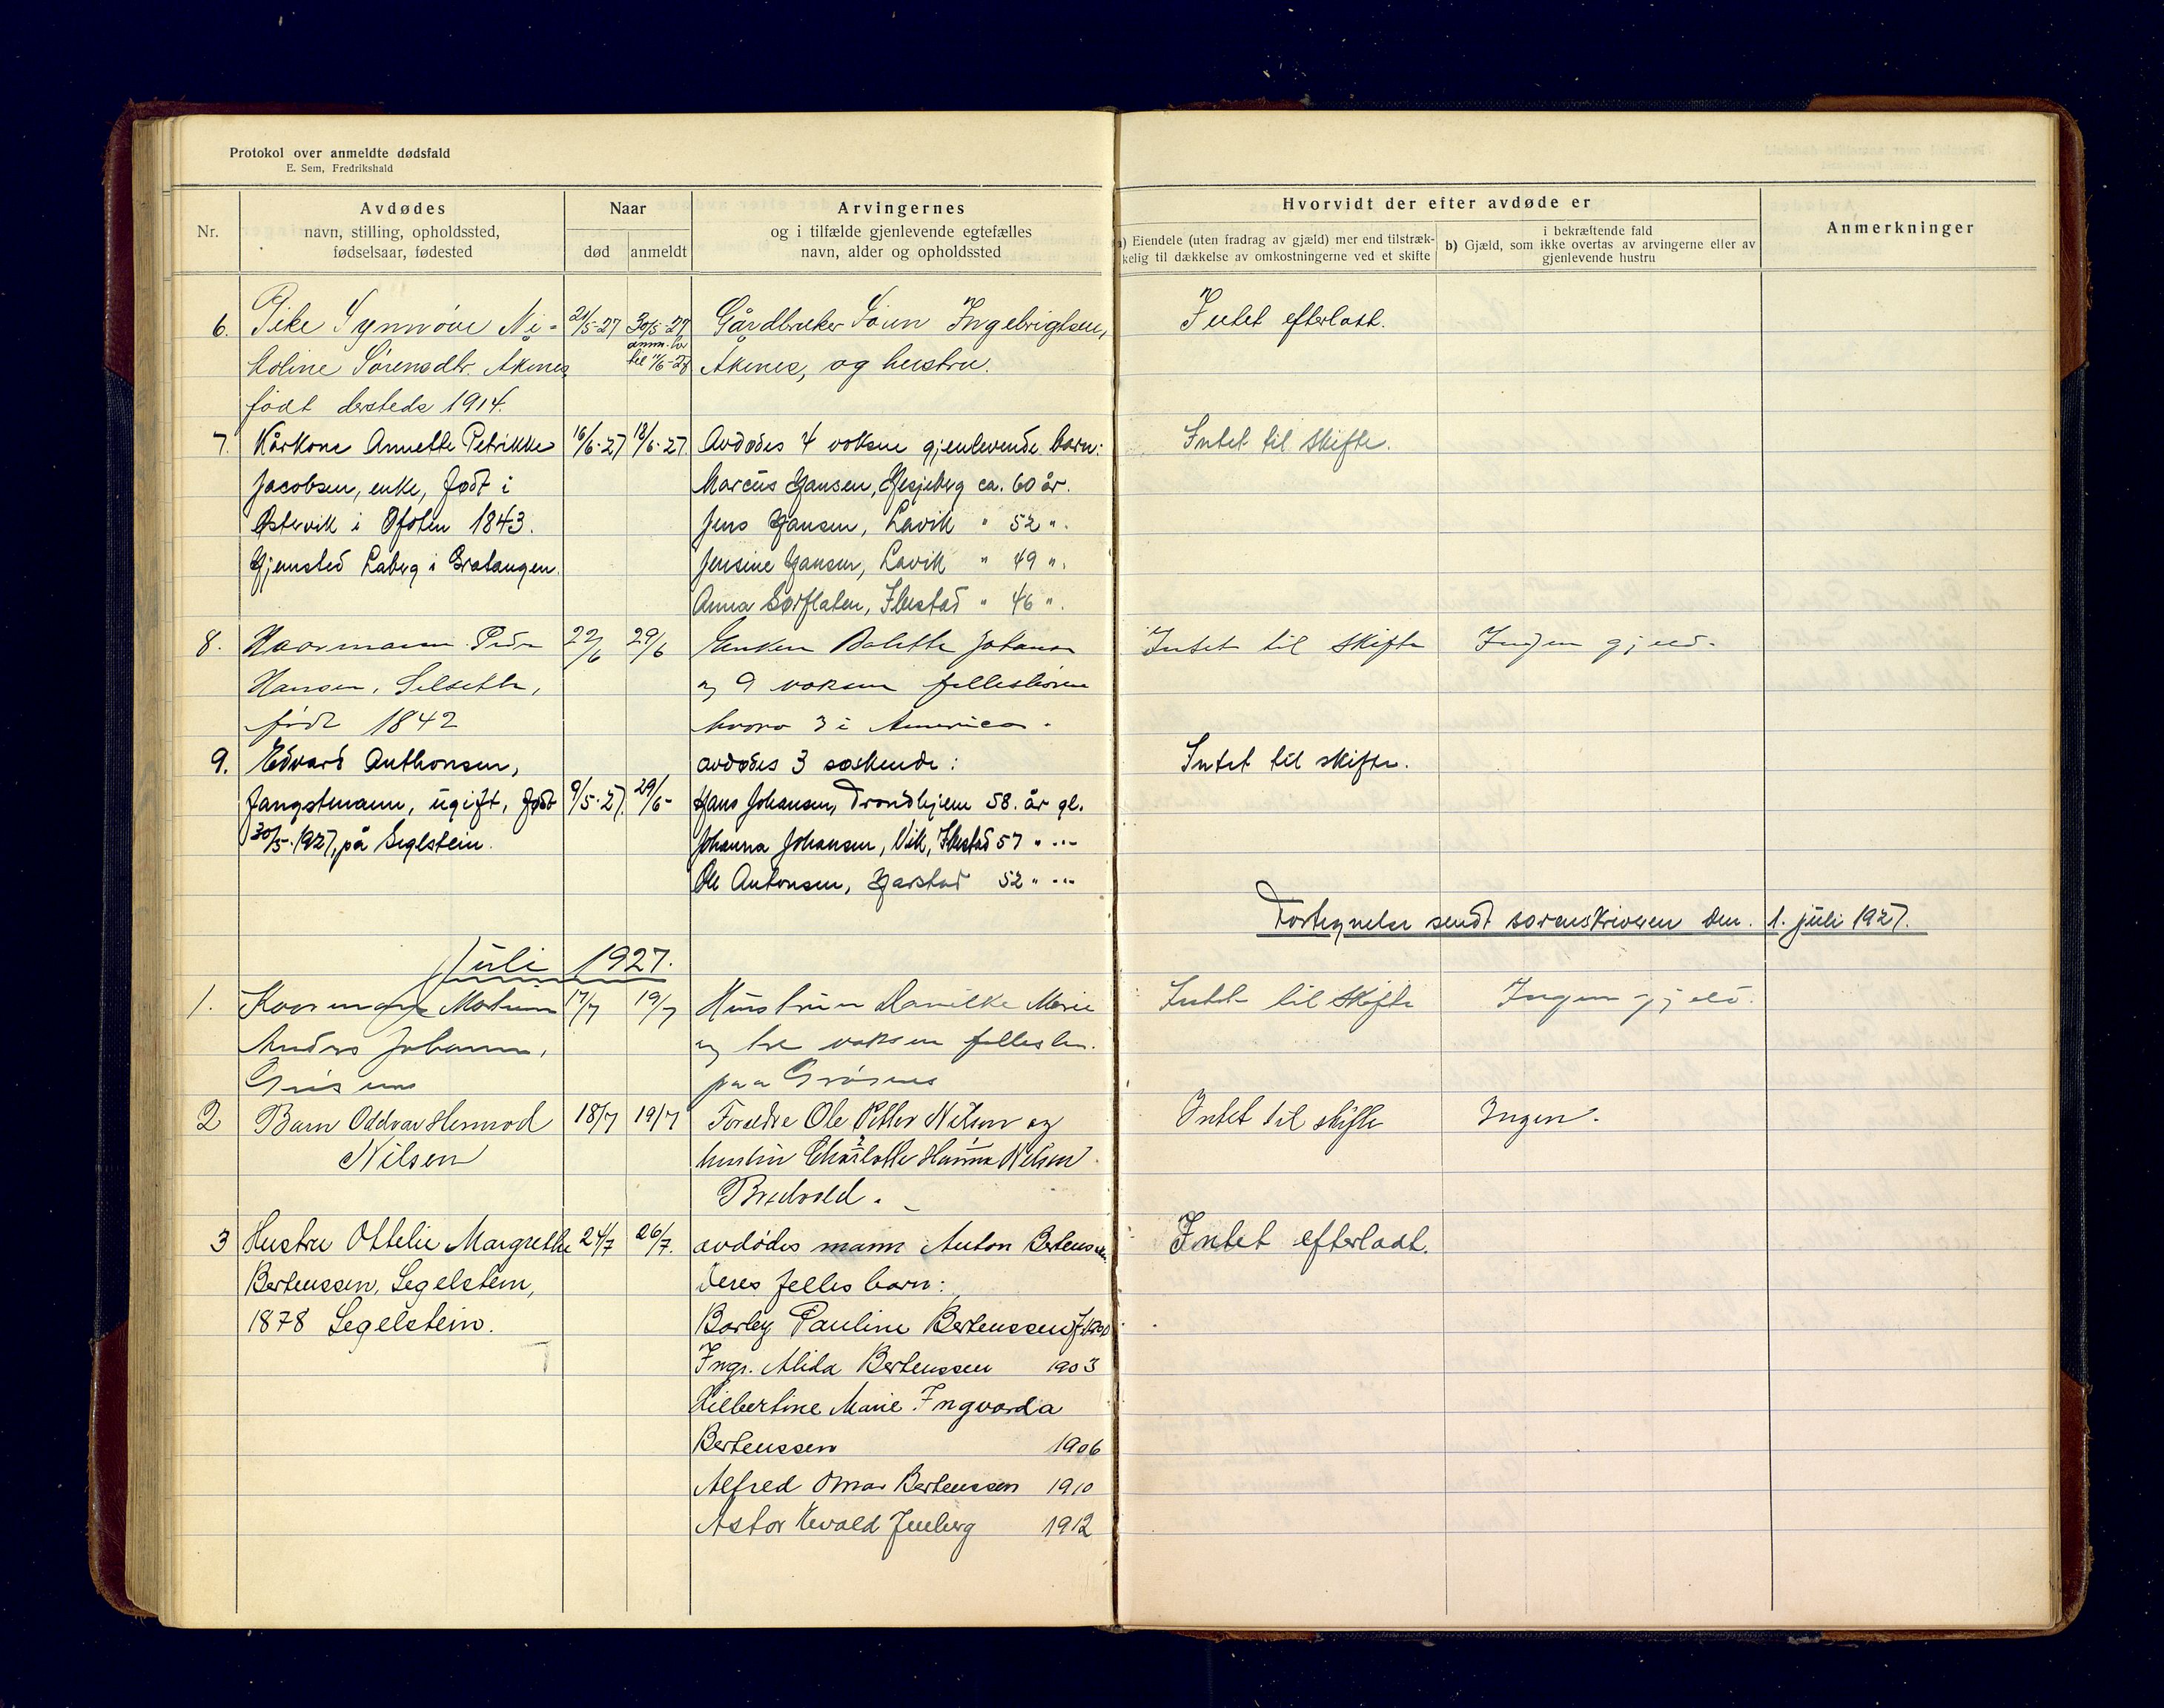 Protokol over anmeldte dødsfald
E. Sem, Fredrikshald
Nr.
Avdødes
navn, stilling, opholdssted,
fødselsaar, fødested
Naar
død
anmeldt
Arvingernes
og i tilfælde gjenlevende egtefælles
navn, alder og opholdssted
Hvorvidt der efter avdøde er
a) Eiendele (uten fradrag av gjæld) mer end tilstræk-
kelig til dækkelse av omkostningerne ved et skifte
i bekræftende fald
b) Gjæld, som ikke overtas av arvingerne eller av
gjenlevende hustru
Anmerkninger
6. Pike Synnöve Ni- 21/5-27 30/5-27 Gårdbruker Sörn Ingebrigtsen, Intet efterladt.
koline Sörensdtr. Akenes, til 11/6-28 Akenes, og hustru.
födt dersteds 1914.
7. Kårkone Annette Petrikke 16/6-27 18/6-27. Avdødes 4 voksne gjenlevende barn: Intet til skifte.
Jacobsen, enke, født i Marcüs Hansen, Hesjeberg ca. 60 år.
Østervik i Ofoten 1843. Jens Hansen, Lavik " 52 ".
Hjemsted Laberg i Gratangen. Jensine Hansen, Lavik " 49 ".
Anna Sørflaten, Ibestad " 46 ".
8. Kaarmann Peder 22/6 29/6 Enken Johansen Intet til skifte Ingen gjeld.
Hansen, Selseth, og 9 voksne fellesbörn
födt 1842 hvorav 3 i America.
9. Edvard Anthonsen, avdødes 3 søskende: Intet til skifte.
fangstmann, ugift, født 9/5-27. 29/6- Hans Johansen, Trondhjem 58. år gl.
30/5-1927, på Seglstein. Johanna Johansen, Vik, Ibestad 57 " ...
Ole Antonsen, Harstad 52 " ...
Fortegnelse sendt sorenskriveren den. 1. juli 1927.
Jüli 1927.
1. Kaarmann Martin 17/7 19/7 Hustruen Marie Intet til skifte Ingen gjeld.
Anders Johansen, og tre voksne fellesbn.
paa
2 Barn Oddvar Hermod 18/7 19/7 Forældre Ole Petter Nilsen og Intet til skifte Ingen.
Nilsen hustru Charlotte Hanna Nilsen
Bredvold.
3 Hustru Ottelie Margrethe 24/7 26/7. avdødes mann Anton Bertenssen Intet efterladt.
Bertenssen, Segelstein, deres felles barn:
1878 Segelstein. Borley Pauline Bertenssen f. 1900
Ingr. Alida Bertenssen 1903
Hilbertine Marie Ingvarda
Bertenssen 1906
Alfred Omar Bertenssen 1910
Astor Jenberg 1912